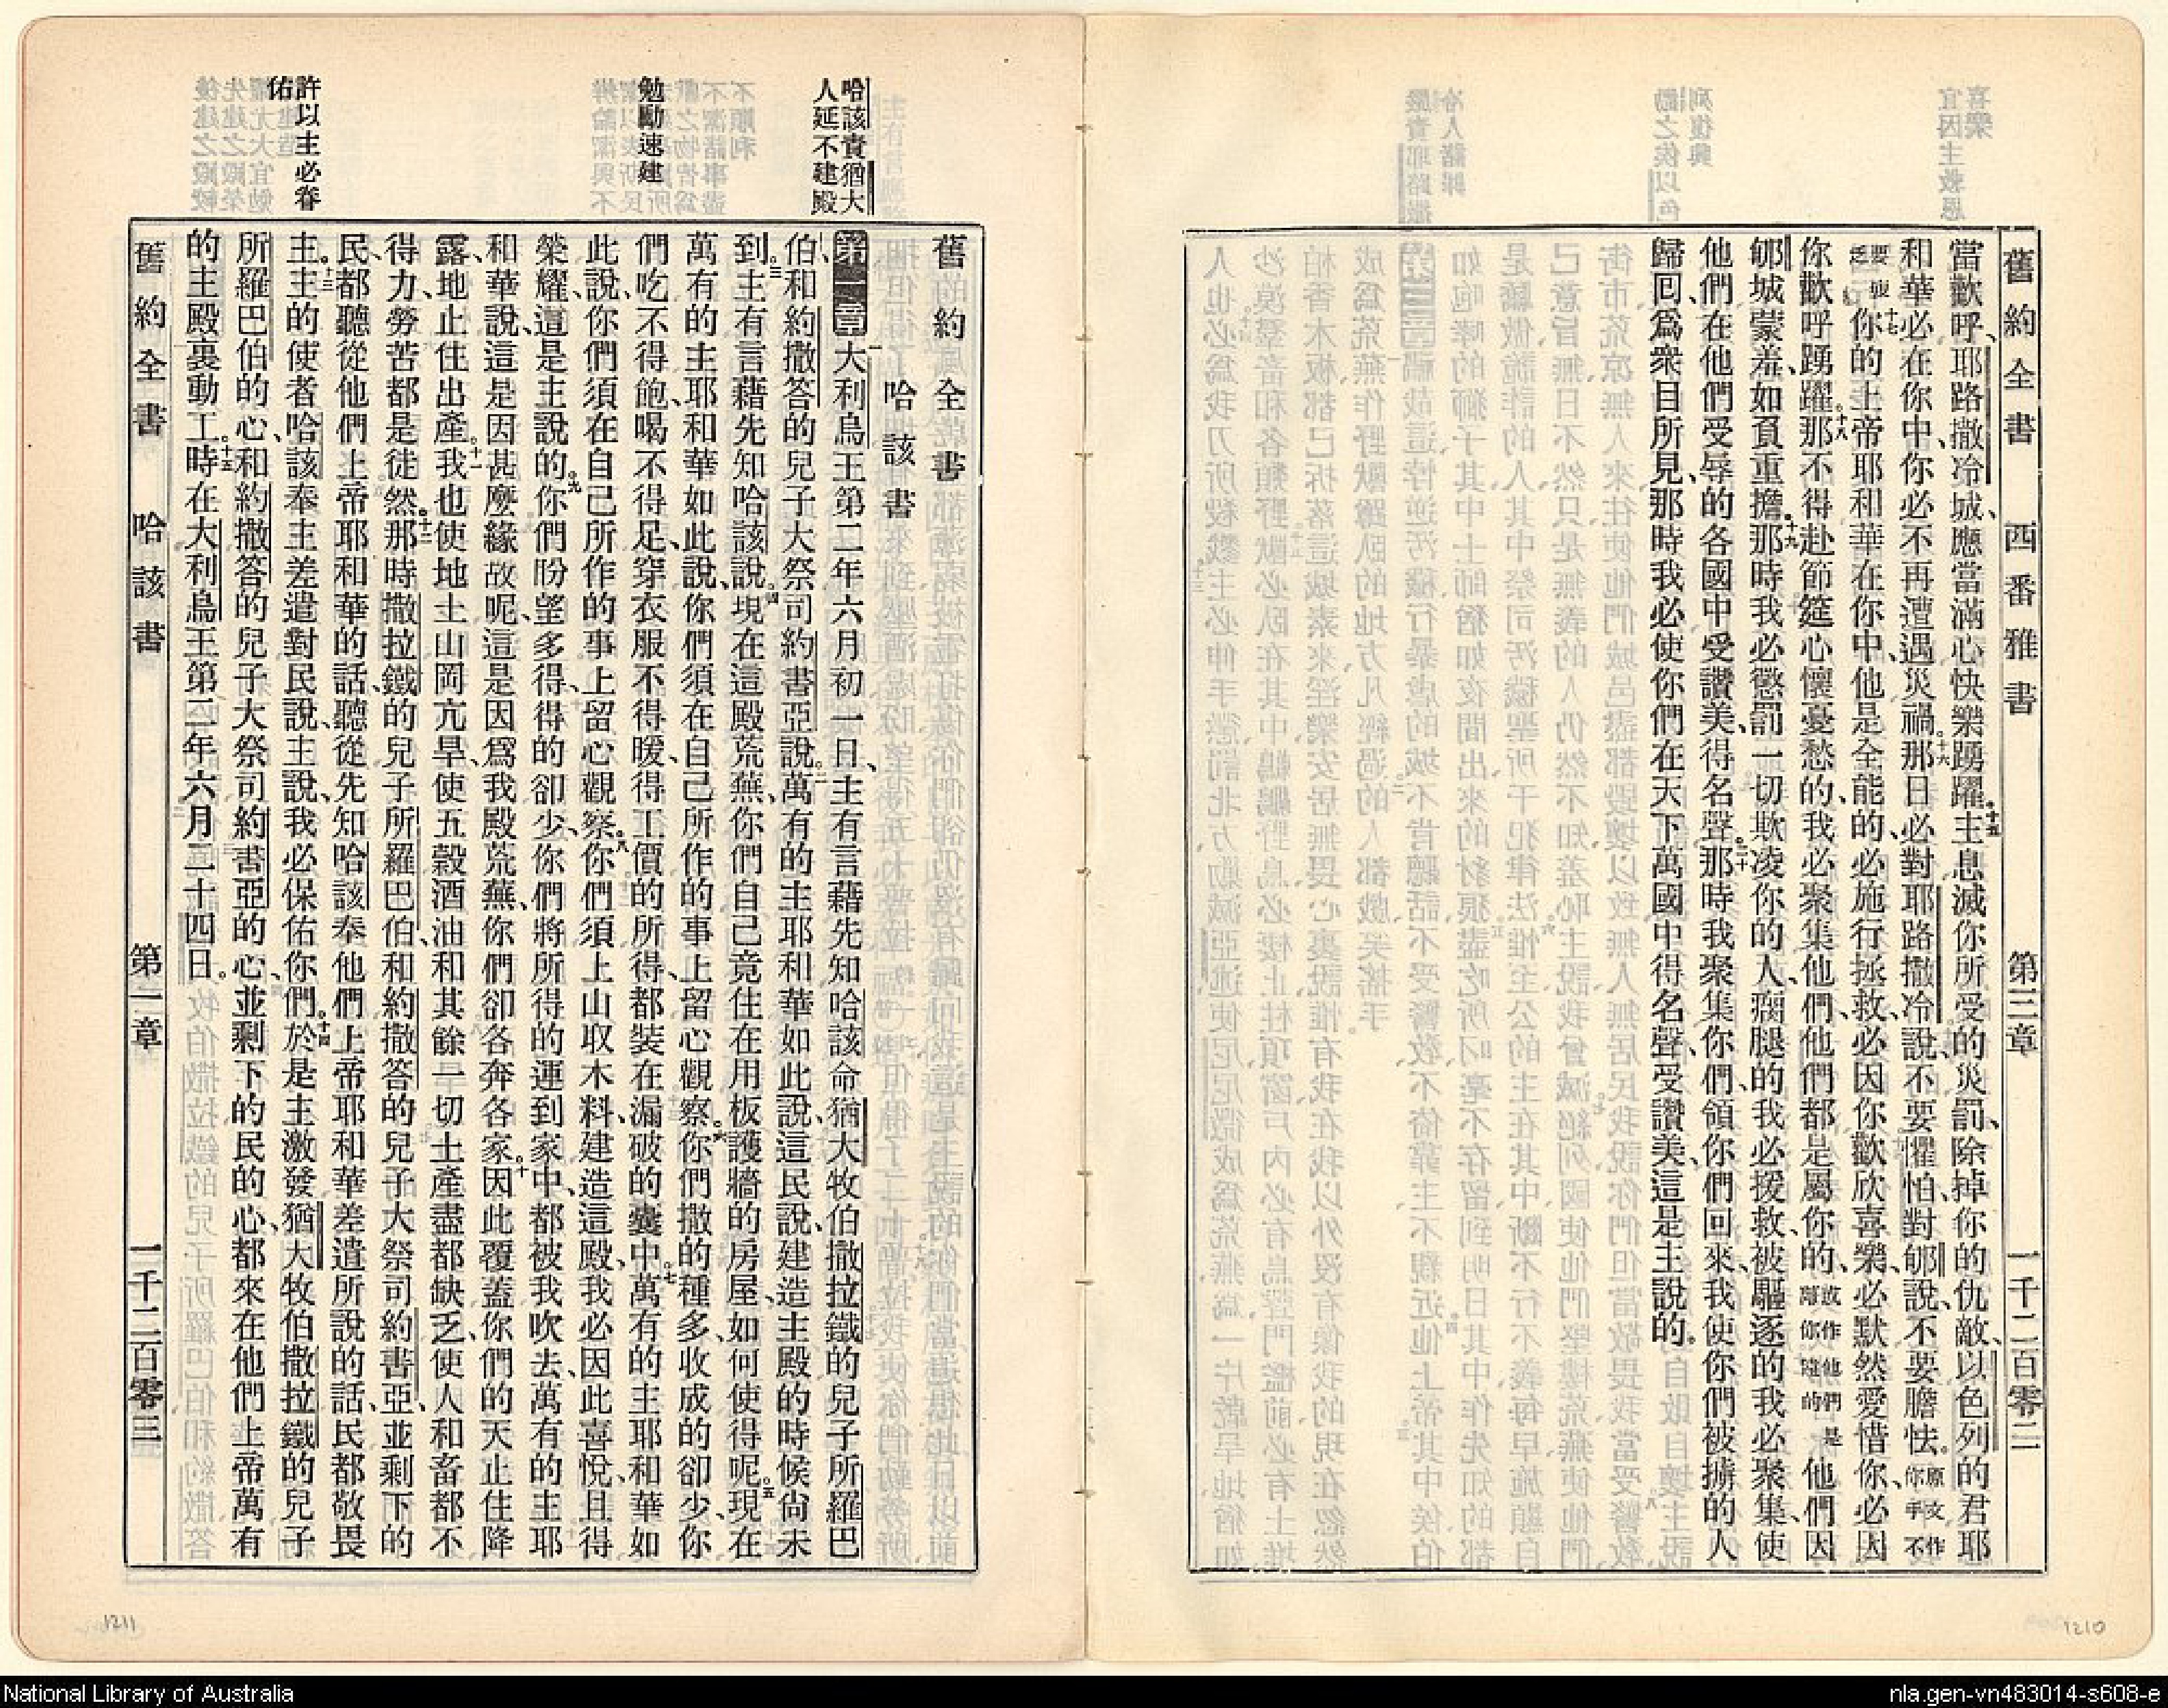 舊約全書 西番雅書 第三章 一千二百零二
當歡呼、耶路撒冷城、應當滿心快樂踴躍。十五主息滅你所受的災罰、除掉你的仇敵、以色列的君耶
和華必在你中、你必不再遭遇災禍。十六那日必對耶路撒冷說、不要懼怕、對郇說、不要膽怯。原文作你手不
要輭十七你的上帝耶和華在你中、他是全能的、必施行拯救、必因你歡欣喜樂、必默然愛惜你、必因
你歡呼踴躍。十八那不得赴節筵心懷憂愁的、我必聚集他們、他們都是屬你的、或作他們是離你 的他們因
郇城蒙羞、如負重擔。十九那時我必懲罰一切欺凌你的人、瘸腿的我必援救、被驅逐的我必聚集、使
他們在他們受辱的各國中受讚美、得名聲。二十那時我聚集你們、領你們回來、我使你們被擄的人
歸回、爲衆目所見、那時我必使你們在天下萬國中得名聲、受讚美、這是主說的。
哈該責猶大
人延不建殿
勉勵速建
許以主必眷
佑
舊約全書
哈該書
第一章一大利烏王第二年六月初一日、主有言藉先知哈該命猶大牧伯撒拉鐵的兒子所羅巴
伯、和約撒答的兒子大祭司約書亞說。二萬有的主耶和華如此說、這民說、建造主殿的時候尙未
到。三主有言藉先知哈該說。四現在這殿荒蕪、你們自己竟住在用板護牆的房屋、如何使得呢。五現在
萬有的主耶和華如此說、你們須在自己所作的事上留心觀察。六你們撒的種多、收成的卻少、你
們吃不得飽、喝不得足、穿衣服不得暖、得工價的所得、都裝在漏破的囊中。七萬有的主耶和華如
此說、你們須在自己所作的事上留心觀察。八你們須上山取木料、建造這殿、我必因此喜悅、且得
榮耀、這是主說的。九你們盼望多得、得的卻少、你們將所得的運到家中、都被我吹去、萬有的主耶
和華說、這是因甚麼緣故呢、這是因爲我殿荒蕪、你們卻各奔各家。十因此覆蓋你們的天止住降
露、地止住出產。十一我也使地土山岡亢旱、使五穀酒油和其餘一切土產盡都缺乏、使人和畜都不
得力、勞苦都是徒然。十二那時撒拉鐵的兒子所羅巴伯、和約撒答的兒子大祭司約書亞、並剩下的
民、都聽從他們上帝耶和華的話、聽從先知哈該奉他們上帝耶和華差遣所說的話、民都敬畏
主。十三主的使者哈該奉主差遣對民說、主說、我必保佑你們。十四於是主激發猶大牧伯撒拉鐵的兒子
所羅巴伯的心、和約撒答的兒子大祭司約書亞的心、並剩下的民的心、都來在他們上帝萬有
的主殿裏動工。十五時在大利烏王第二年六月二十四日。
舊約全書 哈該書 第一章 一千二百零三
1211
1210
National Library of Australia
nla.gen-vn483014-s608-e